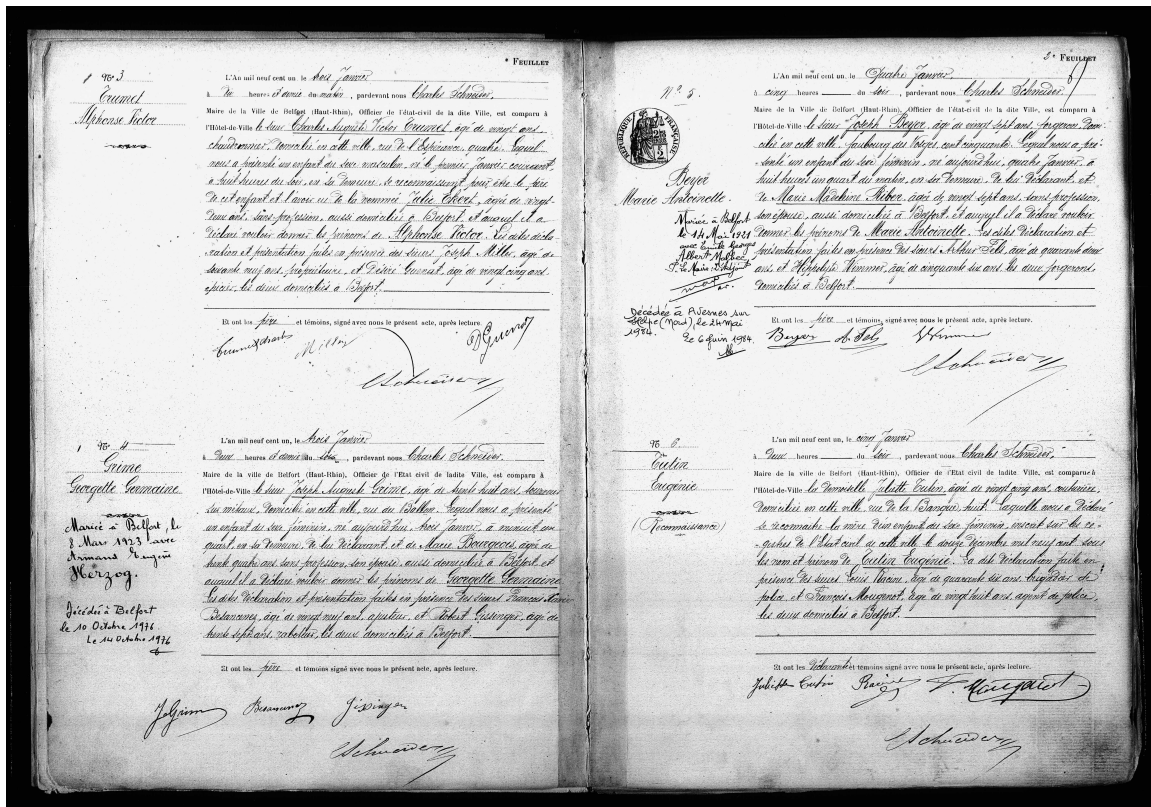 " FEUILLET
N° 3
Alphonse Victor
L'An mil neuf cent un, le trois Janvier
à dix heures et demie du matin, pardevant nous Charles Schneider,
Maire de la Ville de Belfort (Haut-Rhin), Officier de l'état-civil de la dite Ville, est comparu à
l'Hôtel-de-Ville le sieur Charles Auguste Victor, âgé de vingt ans
chaudronnier, domicilié en cette ville, rue de l'Espérance, quatre. Lequel
nous a présenté un enfant du sexe masculin, né le premier Janvier courant,
à huit heures du soir, en sa demeure, se reconnaissant pour être le père
de cet enfant et l'avoir eu de la nommée Julie, âgée de vingt
deux ans, sans profession, aussi domiciliée à Belfort, et auquel il a
déclaré vouloir donner les prénoms de Alphonse Victor. Les dites décla-
ration et présentation faites en présence des sieurs Joseph, âgé de
soixante neuf ans, propriétaire, et Désiré, âgé de vingt cinq ans,
épicier, les deux domiciliés à Belfort.
Et ont les père et témoins, signé avec nous le présent acte, après lecture.
CSchneider
N° 4
Grime
Georgette Germaine
Mariée à Belfort, le
8 Mars 1923 avec
Armand Eugène
Herzog.
Décédée à Belfort
le 10 Octobre 1976
Le 14 Octobre 1976
L'an mil neuf cent un, le trois Janvier
à deux heures et demie du soir, pardevant nous Charles Schneider,
Maire de la ville de Belfort (Haut-Rhin), Officier de l'Etat civil de ladite Ville, est comparu à
l'Hôtel-de-Ville le sieur Joseph Auguste Grime, âgé de trente huit ans,
sur métaux, domicilié en cette ville, rue du Ballon. Lequel nous a présenté
un enfant du sexe féminin, né aujourd'hui, trois Janvier, à minuit un
quart, en sa demeure, de lui déclarant, et de Marie Bourgeois, âgée de
trente quatre ans, sans profession, son épouse, aussi domiciliée à Belfort et
auquel il a déclaré vouloir donner les prénoms de Georgette Germaine
Les dites déclaration et présentation faites en présence des sieurs François Xavier
Besancenez, âgé de vingt neuf ans, ajusteur, et Robert Gissinger, âgé de
trente sept ans, raboteur, les deux domiciliés à Belfort.
Et ont les père et témoins signé avec nous le présent acte, après lecture.
JGrim Besancenez Gissinger
CSchneider
2e FEUILLET
N° 5.
RÉPUBLIQUE FRANÇAISE
Marie Antoinette
Mariée à Belfort
le 14 Mai 1921
avec Emile Georges
Albert
P. Le Maire L'Adjoint
Décédée à Avesnes sur
Helpe (Nord), le 24 mai
1984.
Le 6 juin 1984.
L'An mil neuf cent un, le Quatre Janvier
à cinq heures du soir, pardevant nous Charles Schneider,
Maire de la Ville de Belfort (Haut-Rhin), Officier de l'état-civil de la dite Ville, est comparu à
l'Hôtel-de-Ville le sieur Joseph Beyer, âgé de vingt sept ans, forgeron, domi-
cilié en cette ville, faubourg des Vosges, cent cinquante. Lequel nous a pré-
senté un enfant du sexe féminin, né aujourd'hui, quatre Janvier, à
huit heures un quart du matin, en sa demeure, de lui déclarant, et
de Marie Madeleine, âgée de vingt sept ans, sans profession,
son épouse, aussi domiciliée à Belfort, et auquel il a déclaré vouloir
donner les prénoms de Marie Antoinette. Les dites déclaration et
présentation faites en présence des sieurs Arthur Fels, âgé de quarante deux
ans et Hippolyte Wimmer, âgé de cinquante six ans, les deux forgerons,
domiciliés à Belfort.
Et ont les père et témoins, signé avec nous le présent acte, après lecture.
Beyer A. Fels Wimmer
CSchneider
N° 6
Tutin
Eugénie
(Reconnaissance)
L'An mil neuf cent un, le cinq Janvier
à deux heures du soir, pardevant nous Charles Schneider,
Maire de la ville de Belfort (Haut-Rhin), Officier de l'Etat civil de ladite Ville, est comparue à
l'Hôtel-de-Ville la demoiselle Juliette Tutin, âgée de vingt cinq ans, couturière,
domiciliée en cette ville, rue de la Banque, huit. Laquelle nous a déclaré
se reconnaître la mère d'un enfant du sexe féminin, inscrit sur les re-
-gistres de l'Etat civil de cette ville le douze décembre mil neuf cent sous
les nom et prénom de Tutin Eugénie. La dite déclaration faite en
présence des sieurs Louis Racine, âgé de quarante six ans, brigadier de
police, et François Mougenot, âgé de vingt huit ans, agent de police,
les deux domiciliés à Belfort.
Et ont les déclarante et témoins signé avec nous le présent acte, après lecture.
Juliette Tutin Racine F. Mougenot
CSchneider